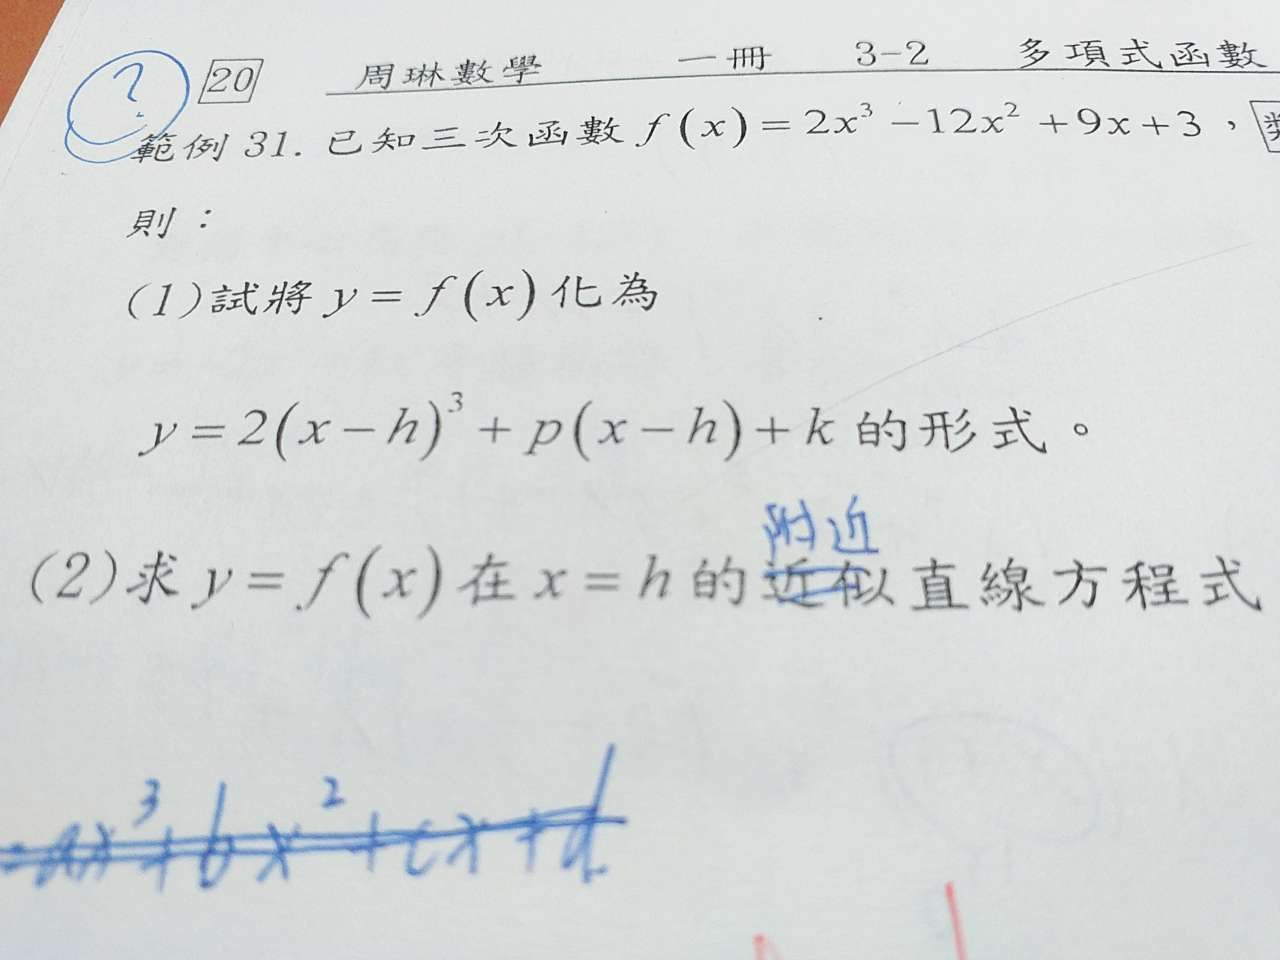 ? 20 周琳數學 一冊 3-2 多項式函數
範例 31. 已知三次函數 f(x) = 2x³ −12x² +9x+3，
則：
(1)試將 y = f(x) 化為
y = 2(x−h)³ + p(x−h)+k 的形式。
附近
(2)求 y = f(x) 在 x = h 的近似直線方程式
=ax³+bx²+cx+d